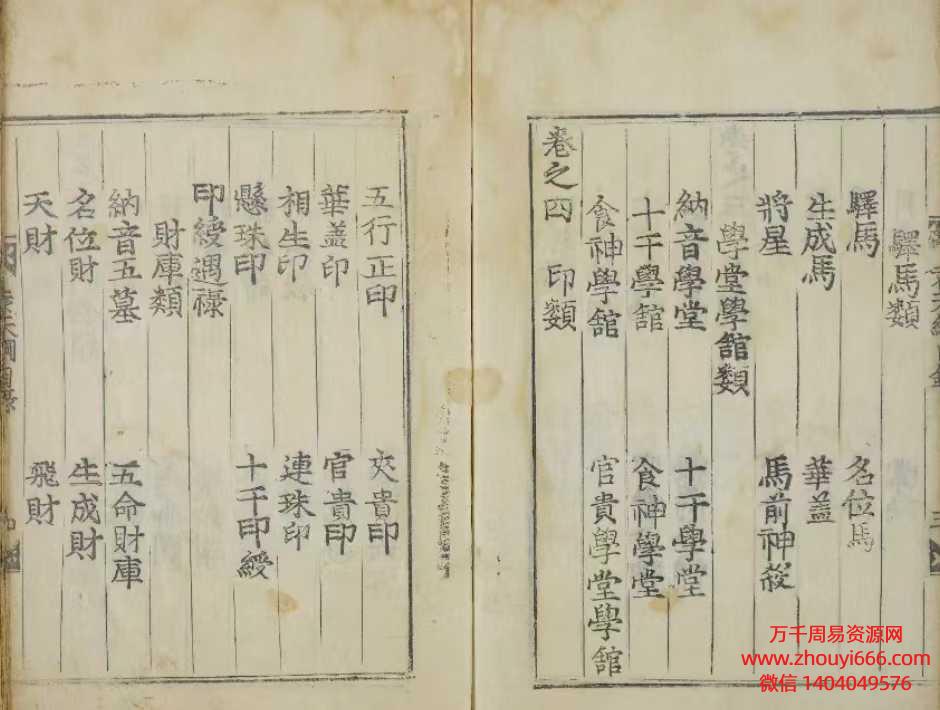 驛馬類
驛馬 名位馬
生成馬 華盖
將星 馬前神殺
學堂學舘類
納音學堂 十干學堂
十干學舘 食神學堂
食神學舘 官貴學堂學舘
卷之四 印類
五行正印 夾貴印
華盖印 官貴印
相生印 連珠印
懸珠印 十干印綬
印綬遇祿
財庫類
納音五墓 五命財庫
名位財 生成財
天財 飛財
万千周易资源网
www.zhouyi666.com
微信 1404049576